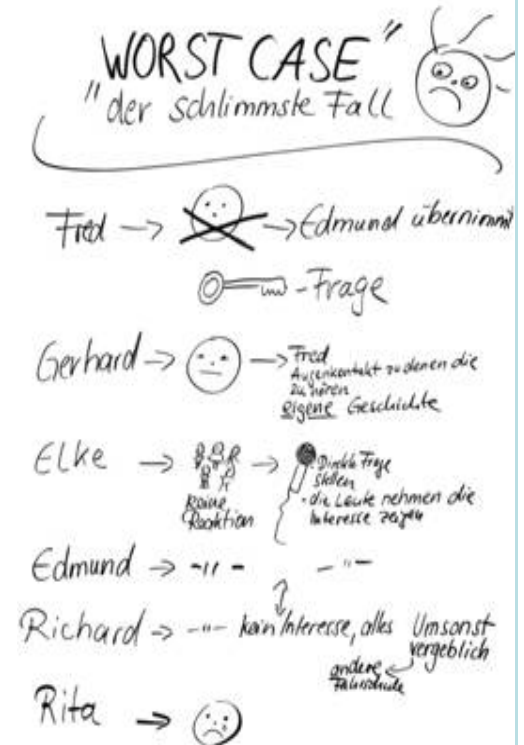 WORST CASE"
"der schlimmste Fall
Fred → → Edmund übernimmt
- Frage
Gerhard → → Fred
Augenkontakt zu denen die
zu hören
eigene Geschichte
Elke → →
keine
Reaktion
· Direkte Frage
stellen
· die Leute nehmen die
Interesse zeigen
Edmund → -"- -"-
Richard → -"- kein Interesse, alles Umsonst
vergeblich
andere
Fahrschule
Rita →